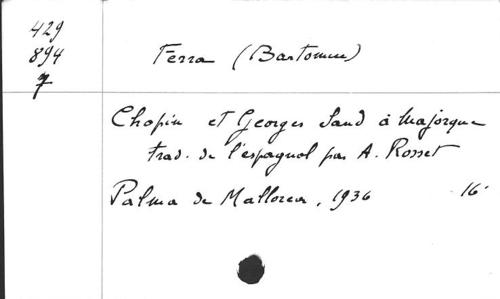 429
894
7
Ferra (Bartomeu)
Chopin et Georges Sand à Majorque
trad. de l'espagnol par A. Rosset
Palma de Mallorca, 1936 16°